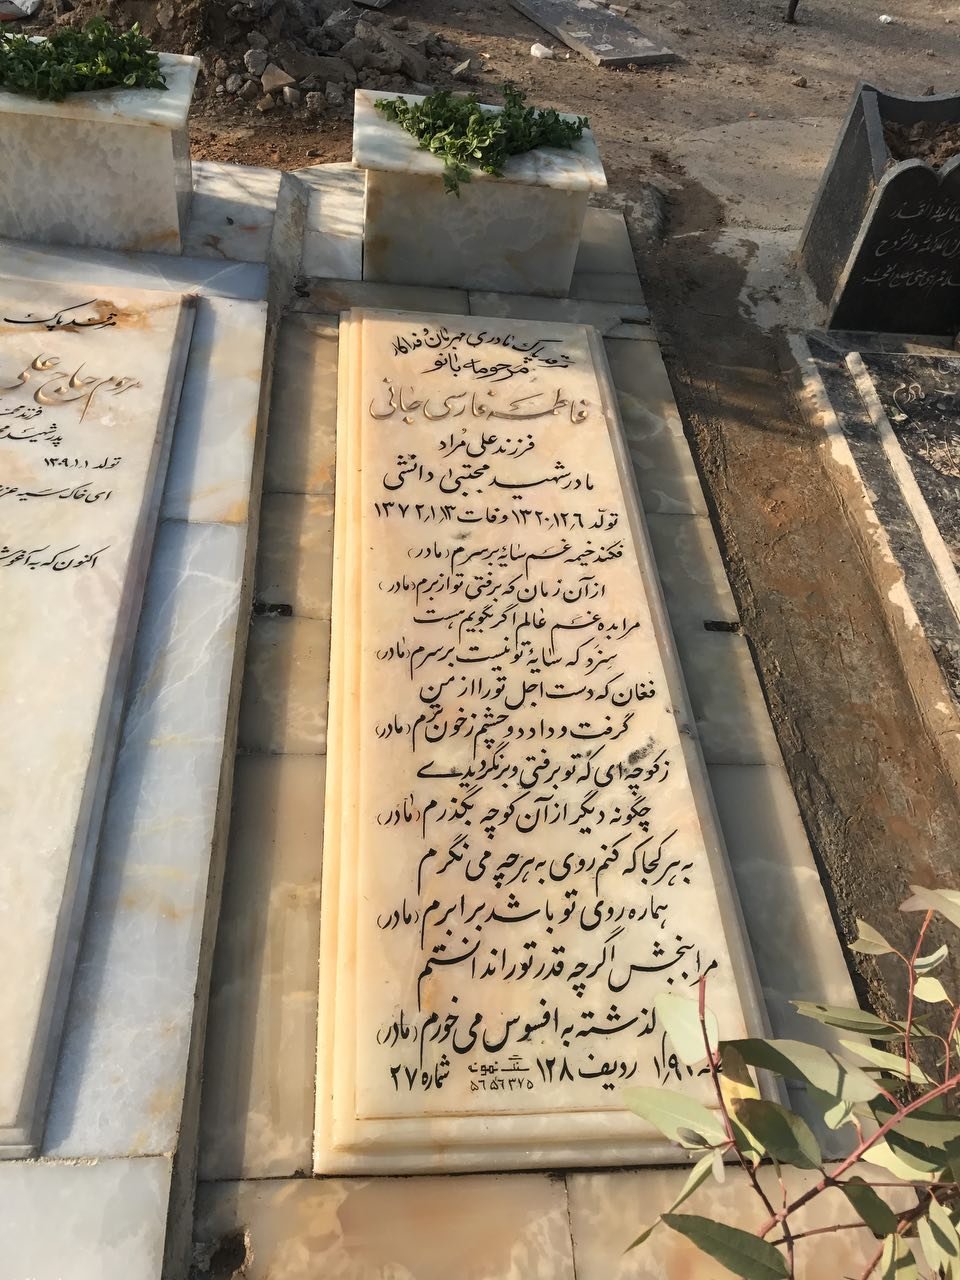 مرقد پاک مادری مهربان و فداکار
مرحومه بانو
فاطمه فارسی جانی
فرزند علی مراد
مادر شهید مجتبی دانشی
تولد ۱۳۲۰٫۱۲٫۶ وفات ۱۳۷۲٫۱٫۱۳
فکند خیمه غم سایهٔ بر سرم (مادر)
از آن زمان که برفتی تو از برم (مادر)
مرا بده غم عالم اگر بگویم هست
سزد که سایهٔ تو نیست بر سرم (مادر)
فغان که دست اجل تو را از من
گرفت و داد دو چشم ز خون ترم (مادر)
ز کوچه ای که تو برفتی و برنگردیدی
چگونه دیگر از آن کوچه بگذرم (مادر)
به هر کجا که کنم روی به هر چه می نگرم
هماره روی تو باشد برابرم (مادر)
مرا ببخش اگر چه قدر تو را ندانستم
گذشته به افسوس می خورم (مادر)
۹۰٫۱ ردیف ۱۲۸ سنگ نمونه ۵۶۵۶۳۷۵ شماره ۲۷
مرقد پاک
مرحوم حاج علی
فرزند
پدر شهید
تولد ۱۳۰۹٫۱٫۱
ای خاک سیه
اکنون که به آغوش
القدر
والروح
حتی مطلع الفجر